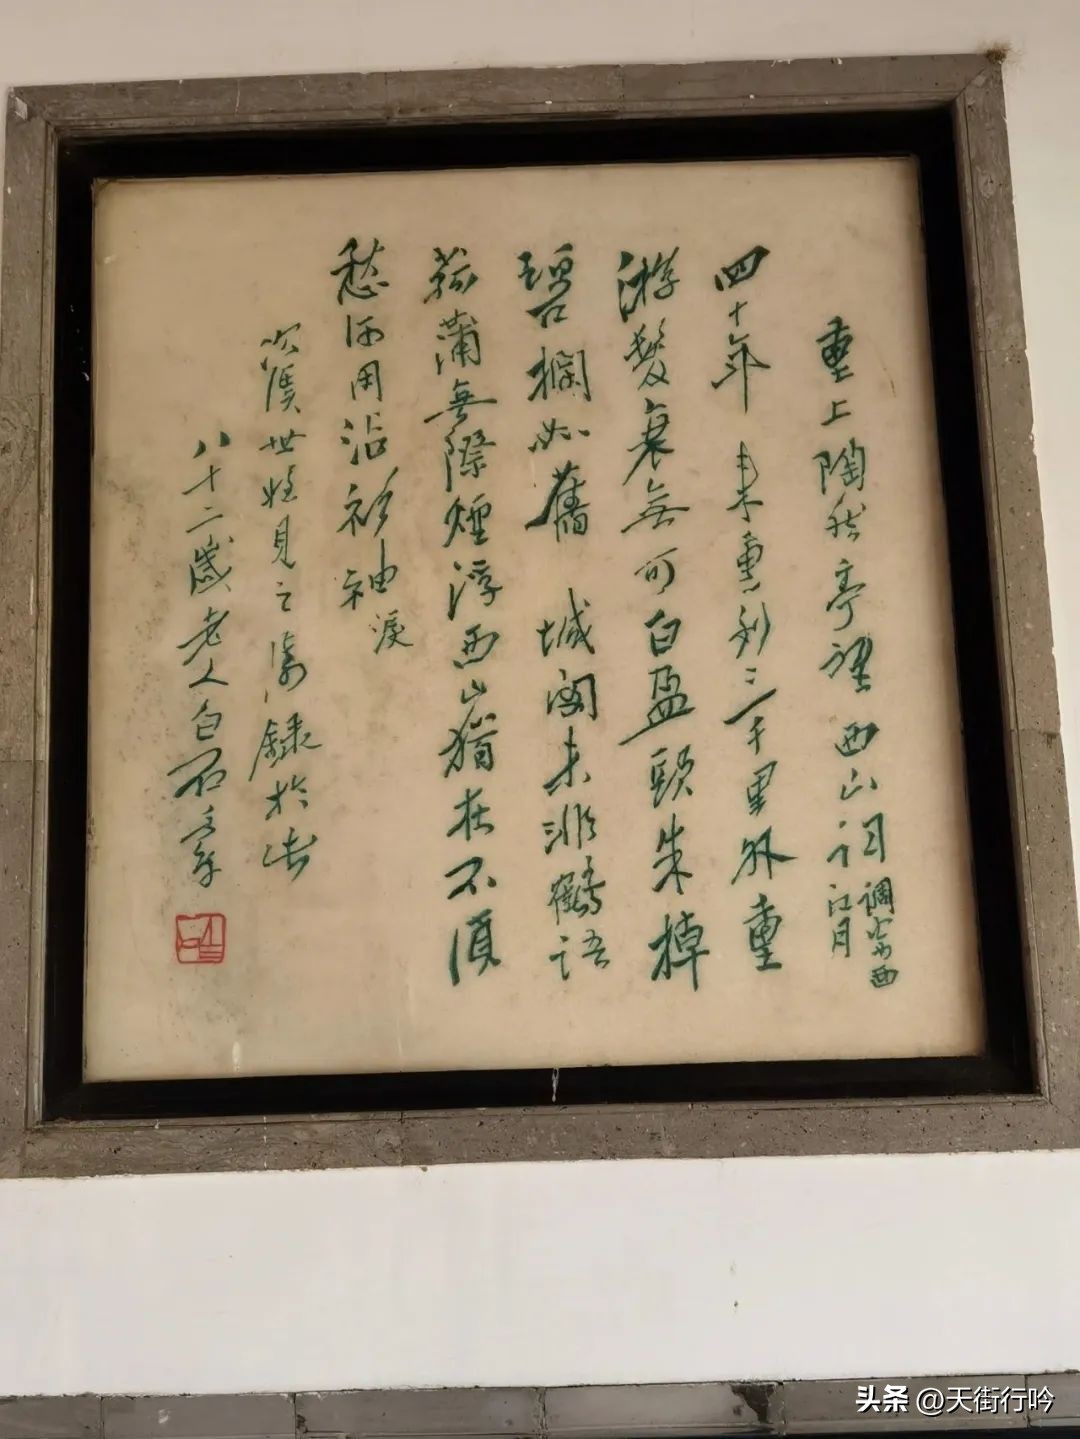 重上陶然亭望西山詞 調寄西
江月
四十年來重到三千里外重
游髮衰無可白盈頭朱棹
碧欄如舊 城闕未非鶴語
菰蒲無際煙浮西山猶在不須
愁何用沾衫袖淚
次溪世姪見之屬錄於此
八十二歲老人白石
头条 @天街行吟